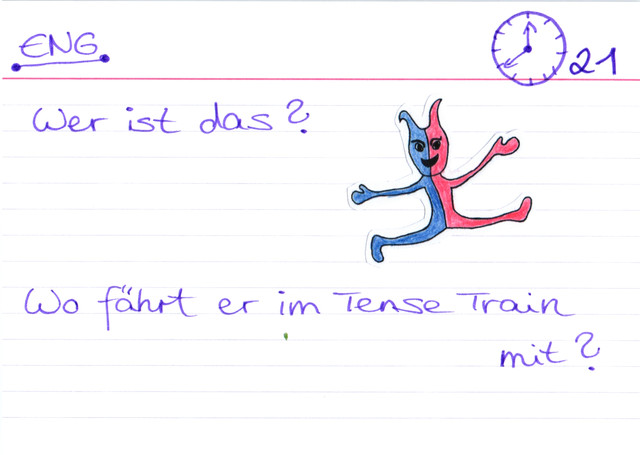 ENG
21
Wer ist das?
Wo fährt er im Tense Train
mit?